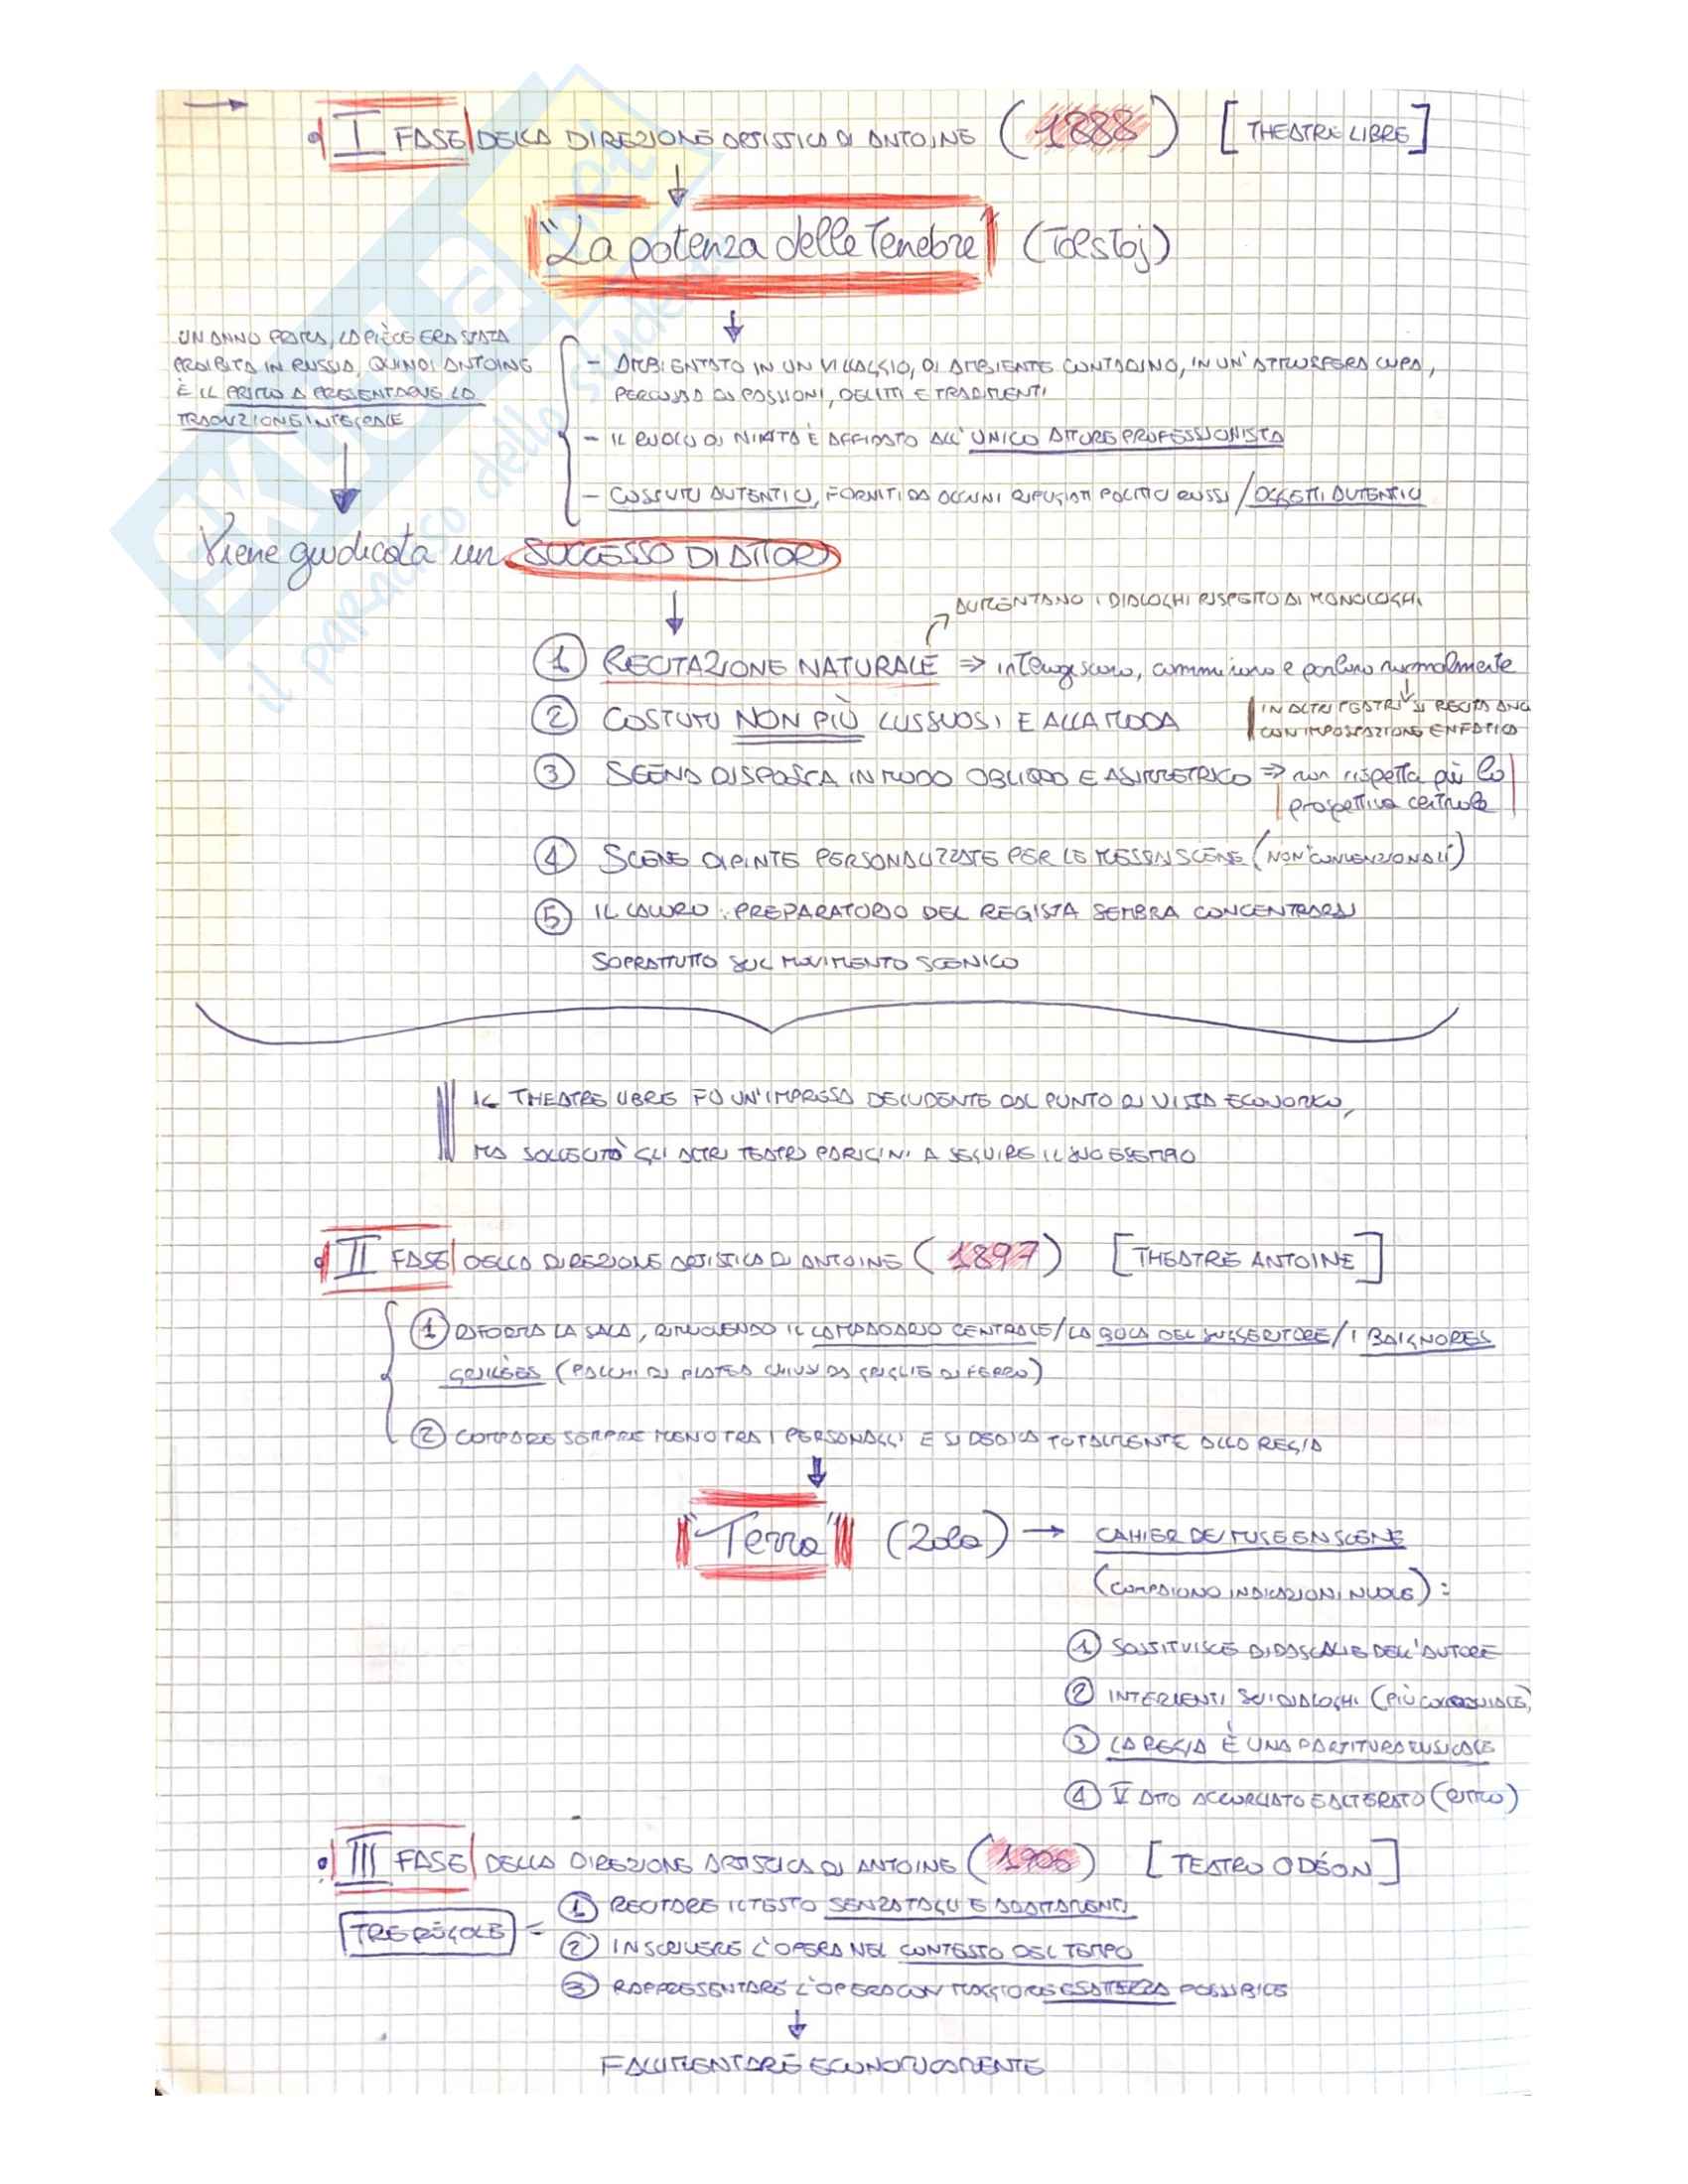 I FASE DELLA DIREZIONE ARTISTICA DI ANTOINE (1888) [THEATRE LIBRE]
"La potenza delle Tenebre" (Tolstoj)
UN ANNO PRIMA, LA PIÈCE ERA STATA
PROIBITA IN RUSSIA, QUINDI ANTOINE
È IL PRIMO A PRESENTARNE LA
TRADUZIONE INTEGRALE
- AMBIENTATO IN UN VILLAGGIO, DI AMBIENTE CONTADINO, IN UN'ATMOSFERA CUPA,
PERCORSA DA PASSIONI, DELITTI E TRADIMENTI
- IL RUOLO DI NIKITA È AFFIDATO ALL'UNICO ATTORE PROFESSIONISTA
- COSTUMI AUTENTICI, FORNITI DA ALCUNI RIFUGIATI POLITICI RUSSI / OGGETTI AUTENTICI
Viene giudicata un SUCCESSO DI ATTORI
AUMENTANO I DIALOGHI RISPETTO AI MONOLOGHI
1 RECITAZIONE NATURALE ⇒ interagiscono, camminano e parlano normalmente
IN ALTRI TEATRI SI RECITAVA
CON IMPOSTAZIONE ENFATICA
2 COSTUMI NON PIÙ LUSSUOSI E ALLA MODA
3 SCENA DISPOSTA IN MODO OBLIQUO E ASIMMETRICO ⇒ non rispetta più la
prospettiva centrale
4 SCENE DIPINTE PERSONALIZZATE PER LE MESSINSCENE (NON "CONVENZIONALI")
5 IL LAVORO PREPARATORIO DEL REGISTA SEMBRA CONCENTRARSI
SOPRATTUTTO SUL MOVIMENTO SCENICO
IL THEATRE LIBRE FU UN'IMPRESA DELUDENTE DAL PUNTO DI VISTA ECONOMICO,
MA SOLLECITÒ GLI ALTRI TEATRI PARIGINI A SEGUIRE IL SUO ESEMPIO
II FASE DELLA DIREZIONE ARTISTICA DI ANTOINE (1897) [THEATRE ANTOINE]
1 RIFORMA LA SALA, RIMUOVENDO IL LAMPADARIO CENTRALE / LA BUCA DEL SUGGERITORE / I BAIGNORES
GRILLÈES (PALCHI DI PLATEA CHIUSI DA GRIGLIE DI FERRO)
2 COMPARE SEMPRE MENO TRA I PERSONAGGI E SI DEDICA TOTALMENTE ALLA REGIA
"Terra" (Zola) → CAHIER DE MISE EN SCENE
(COMPAIONO INDICAZIONI NUOVE):
1 SOSTITUISCE DIDASCALIE DELL'AUTORE
2 INTERVENTI SUI DIALOGHI (PIÙ COLLOQUIALE)
3 LA REGIA È UNA PARTITURA MUSICALE
4 V ATTO ACCORCIATO E ALTERATO (RITMO)
III FASE DELLA DIREZIONE ARTISTICA DI ANTOINE (1906) [TEATRO ODÉON]
TRE REGOLE =
1 RECITARE IL TESTO SENZA TAGLI E ADATTAMENTI
2 INSCRIVERE L'OPERA NEL CONTESTO DEL TEMPO
3 RAPPRESENTARE L'OPERA CON MAGGIORE ESATTEZZA POSSIBILE
FALLIMENTARE ECONOMICAMENTE
SKUOLA.net
il paradiso dello studente